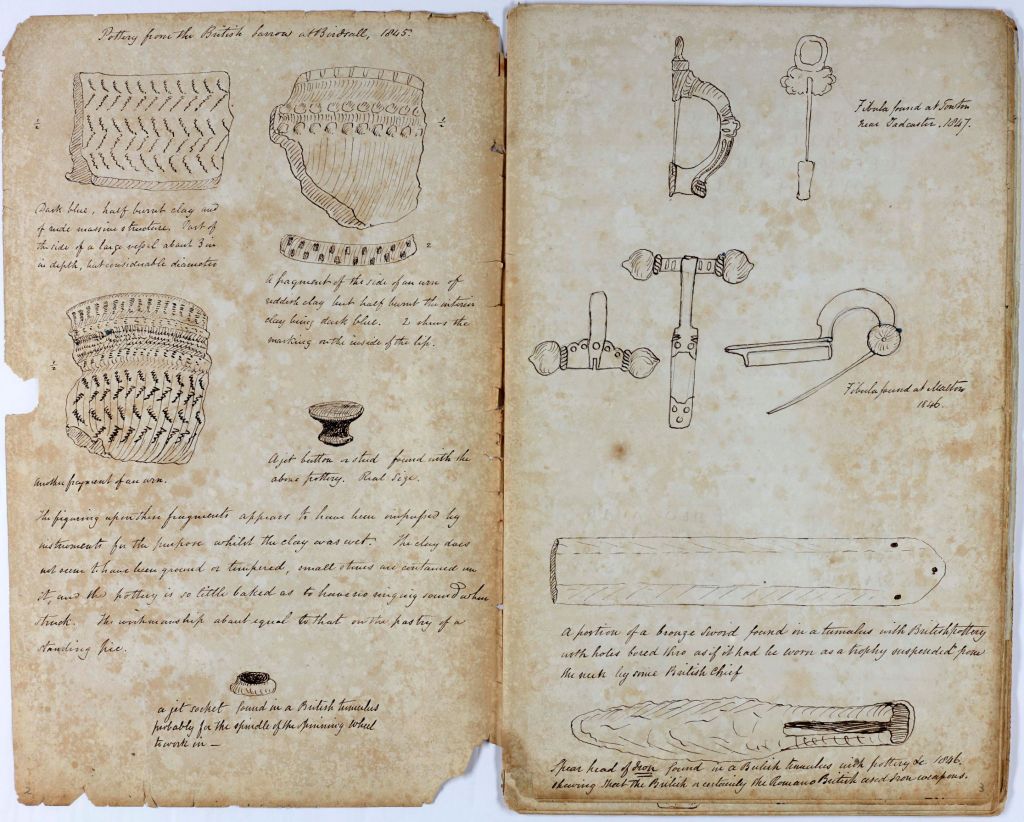 Pottery from the British barrow at Birdsall, 1845.
½
½
Dark blue, half burnt clay and
of rude massive structure. Part of
the side of a large vessel about 3 in
in depth, but considerable diameter
2
A fragment of the side of an urn of
reddish clay but half burnt the interior
clay being dark blue. 2 shews the
marking on the inside of the lip.
½
Another fragment of an urn.
A jet button or stud found with the
above pottery. Real Size.
The figuring upon these fragments appears to have been impressed by
instruments for the purpose whilst the clay was wet. The clay does
not seem to have been ground or tempered, small stones are contained in
it, and the pottery is so little baked as to have no ringing sound when
struck. The workmanship about equal to that on the pastry of a
standing pie.
a jet socket found in a British tumulus
probably for the spindle of the spinning wheel
to work in —
2
Fibula found at Towton
near Tadcaster. 1847.
Fibula found at Malton
1846.
A portion of a bronze sword found in a tumulus with British pottery
with holes bored thro as if it had be worn as a trophy suspended from
the neck by some British Chief
Spear head of Iron found in a British tumulus with pottery &c 1846.
shewing that the British or certainly the Romano British used Iron weapons.
3